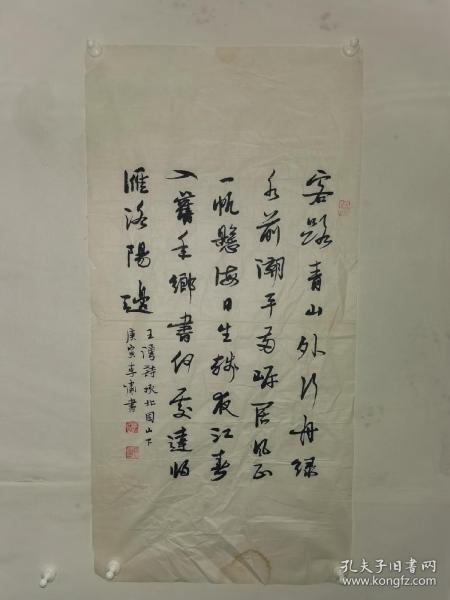 客路青山外行舟绿
水前潮平两岸闊风正
一帆懸海日生残夜江春
入舊年鄉書何处達归
雁洛陽邊
王灣詩次北固山下
庚寅李書
孔夫子旧书网
www.kongfz.com